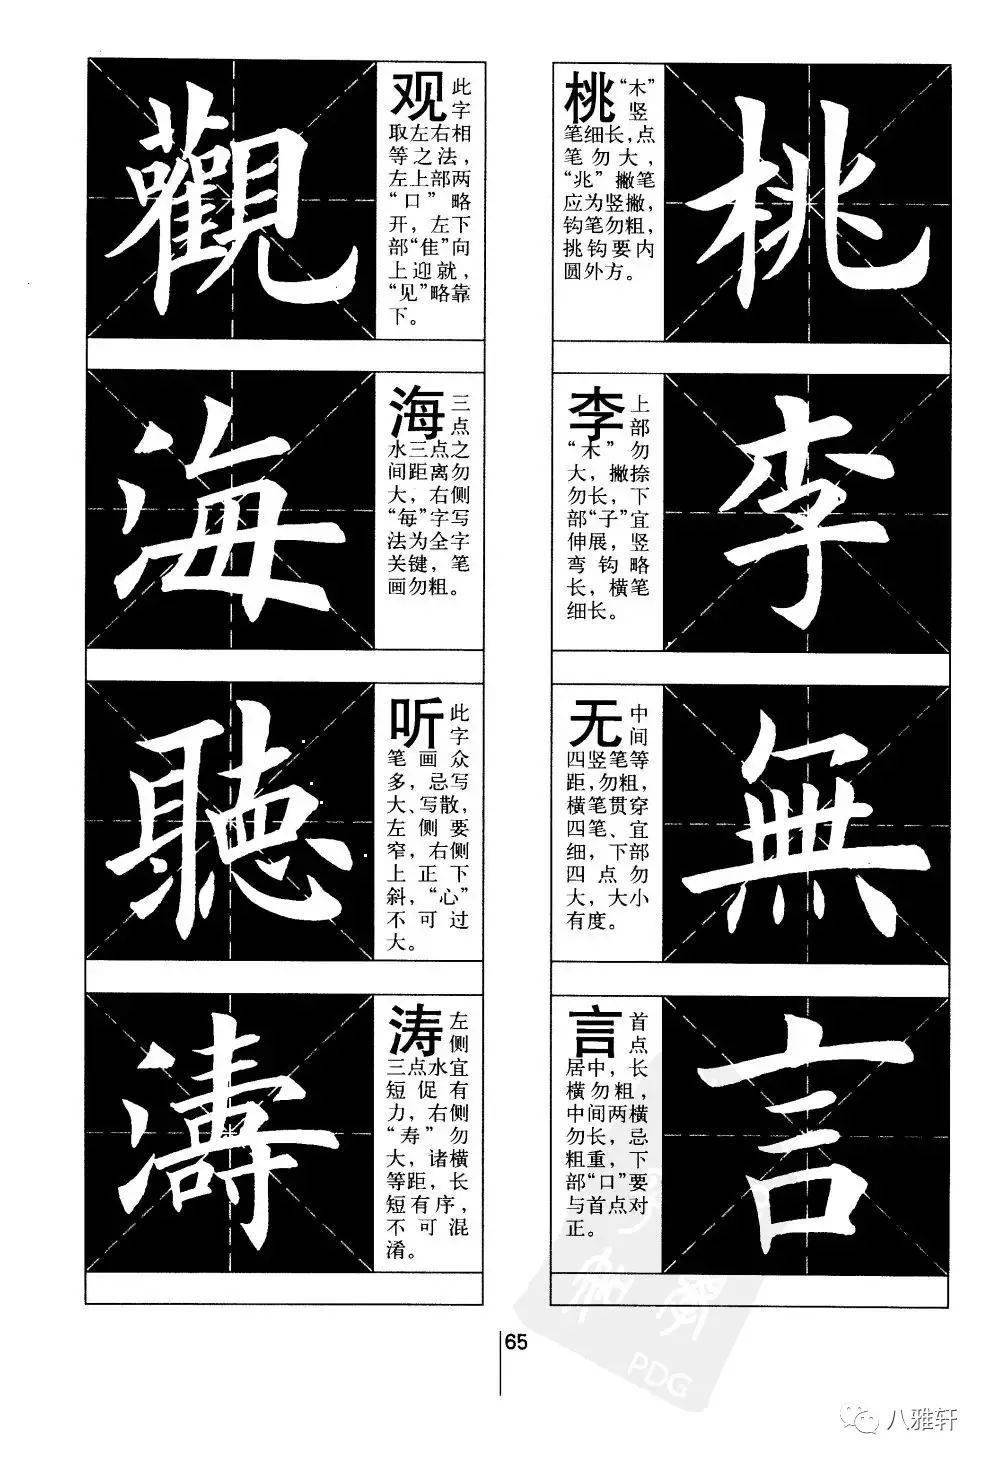 觀
观 此字
取左右相
等之法，
左上部两
“口”略
开，左下
部“隹”向
上迎就，
“见”略靠
下。
海
海 三点
水三点之
间距离勿
大，右侧
“每”字写
法为全字
关键，笔
画勿粗。
聽
听 此字
笔画众
多，忌写
大、写散，
左侧要
窄，右侧
上正下
斜，“心”
不可过
大。
濤
涛 左侧
三点水宜
短促有
力，右侧
“寿”勿
大，诸横
等距，长
短有序，
不可混
淆。
桃 “木”竖
笔细长，点
笔勿大，
“兆”撇笔
应为竖撇，
钩笔勿粗，
挑钩要内
圆外方。
桃
李 上部
“木”勿
大，撇捺
勿长，下
部“子”宜
伸展，竖
弯钩略
长，横笔
细长。
李
无 中间
四竖笔等
距，勿粗，
横笔贯穿
四笔、宜
细，下部
四点勿
大，大小
有度。
無
言 首点
居中，长
横勿粗，
中间两横
勿长，忌
粗重，下
部“口”要
与首点对
正。
言
65
PDG
八雅轩